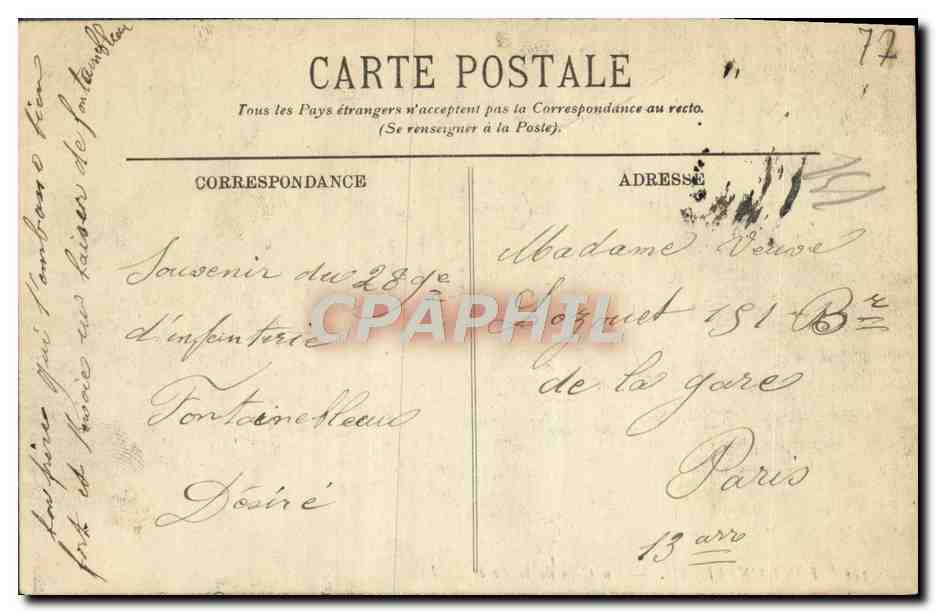 77
CARTE POSTALE
Tous les Pays étrangers n'acceptent pas la Correspondance au recto.
(Se renseigner à la Poste).
CORRESPONDANCE
ADRESSE
Souvenir du 289e
d'infanterie
Fontainebleau
Désiré
Madame Veuve
151 Br
de la gare
Paris
13 arre
ton frère qui t'embrasse bien
fort et t'envoie un baiser de fontainebleau
CPAPHIL